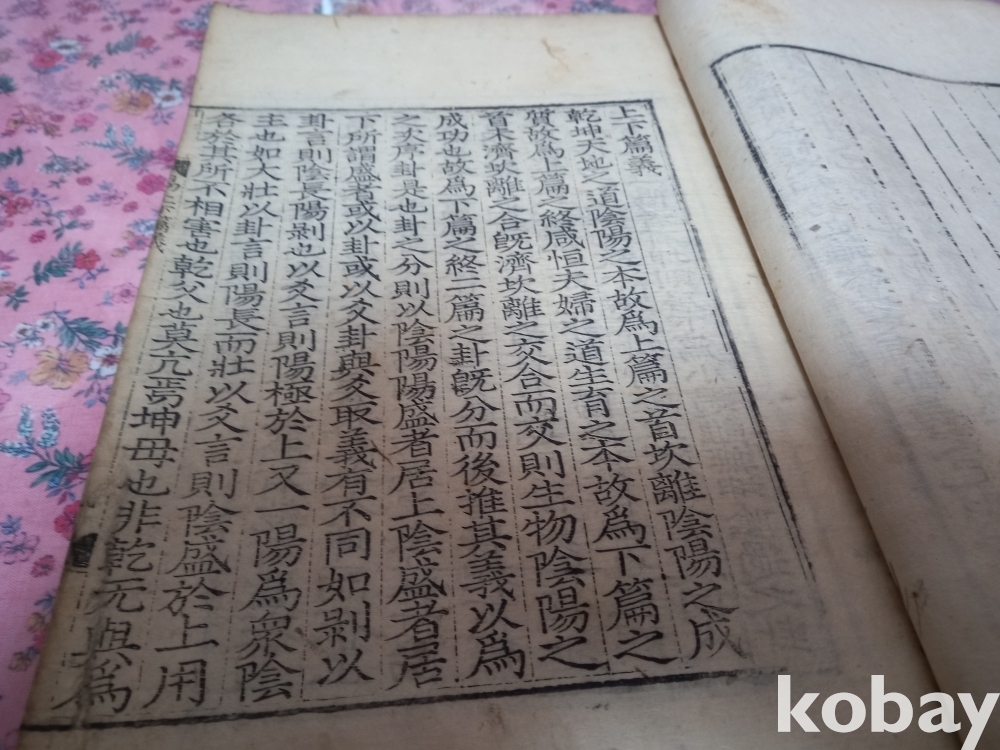 上下篇義
乾坤天地之道陰陽之本故爲上篇之首坎離陰陽之成
質故爲上篇之終咸恒夫婦之道生育之本故爲下篇之
首未濟坎離之合旣濟坎離之交合而交則生物陰陽之
成功也故爲下篇之終二篇之卦旣分而後推其義以爲
之次序卦是也卦之分則以陰陽陽盛者居上陰盛者居
下所謂盛者或以卦或以爻卦與爻取義有不同如剝以
卦言則陰長陽剝也以爻言則陽極於上又一陽爲衆陰
主也如大壯以卦言則陽長而壯以爻言則陰盛於上用
各於其所不相害也乾父也莫亢焉坤母也非乾无與爲
kobay